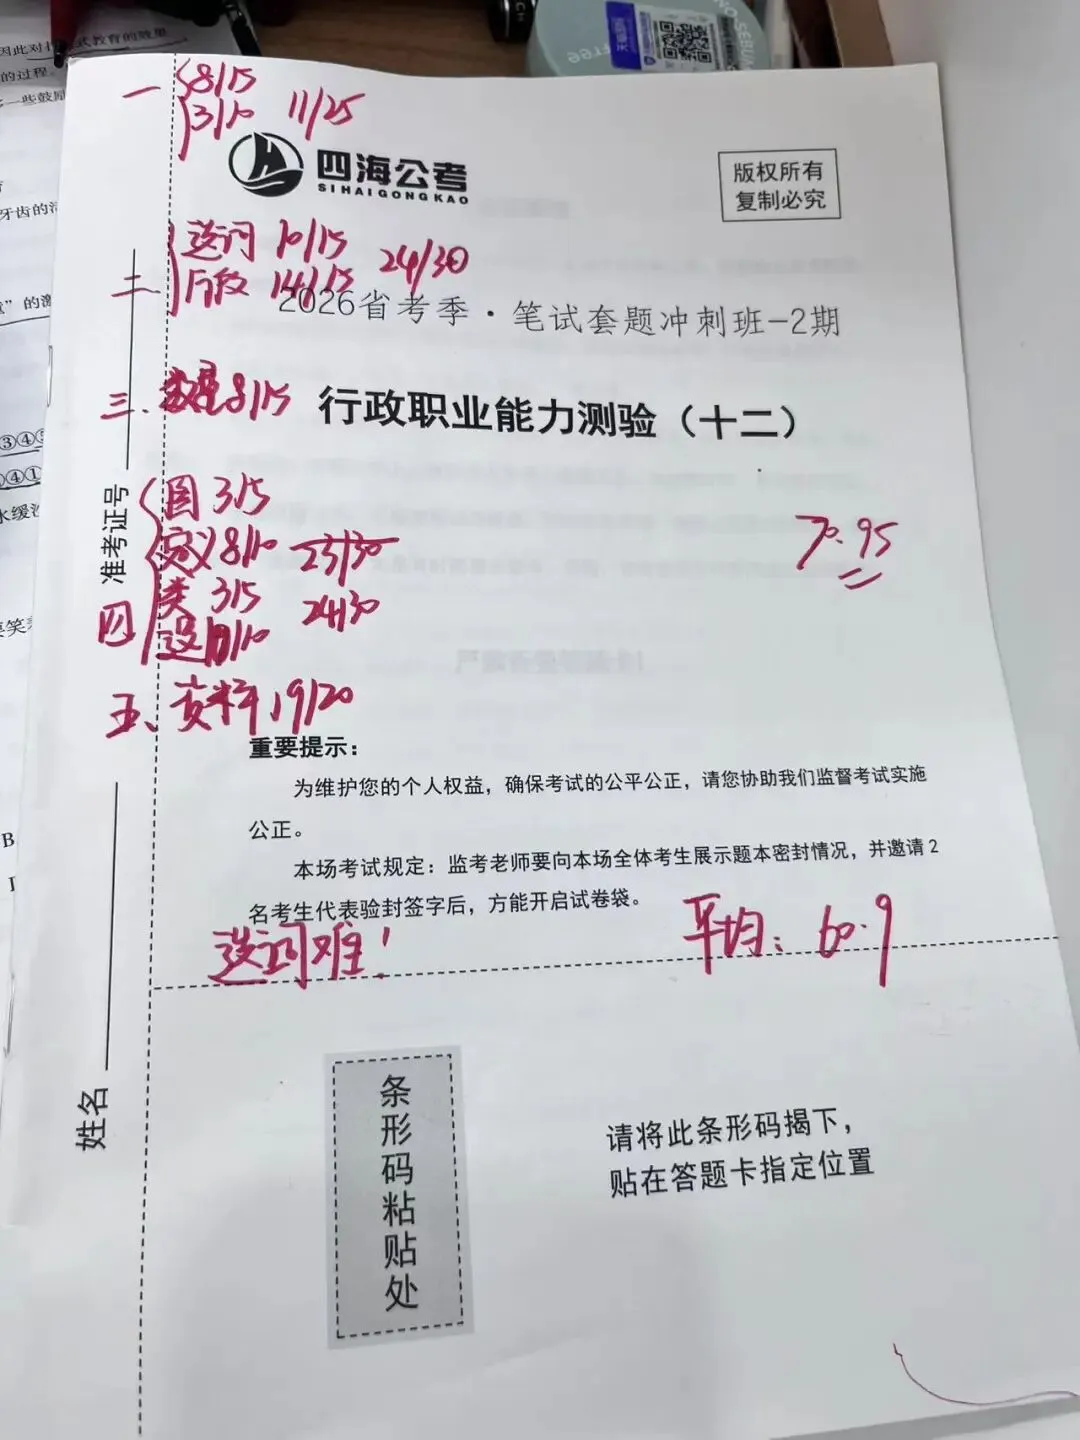 一 8/15
3/10 11/25
四海公考
SIHAIGONGKAO
版权所有
复制必究
二、选词 10/15 24/30
片段 14/15
2026省考季·笔试套题冲刺班-2期
三、数量8/15
行政职业能力测验（十二）
准考证号
四 图 3/5
定义 8/10 23/30
类 3/5 24/30
逻
70.95
五、资料 19/20
重要提示：
为维护您的个人权益，确保考试的公平公正，请您协助我们监督考试实施
公正。
本场考试规定：监考老师要向本场全体考生展示题本密封情况，并邀请2
名考生代表验封签字后，方能开启试卷袋。
选词难！
平均：60.9
姓名
条形码粘贴处
请将此条形码揭下，
贴在答题卡指定位置
因此对
式教育的效果
的过程
一些鼓励
牙齿的
”的
③④
④①
水缓
B